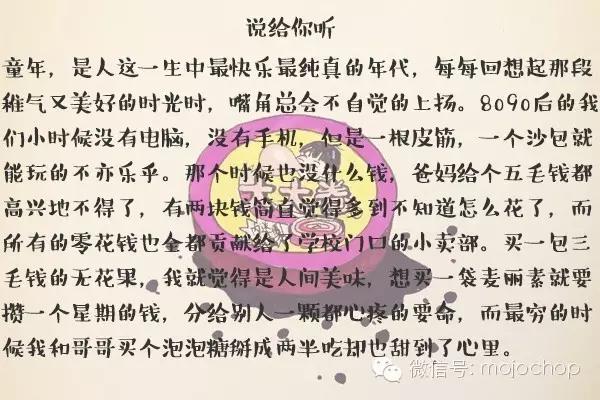 说给你听
童年，是人这一生中最快乐最纯真的年代，每每回想起那段
稚气又美好的时光时，嘴角总会不自觉的上扬。8090后的我
们小时候没有电脑，没有手机，但是一根皮筋，一个沙包就
能玩的不亦乐乎。那个时候也没什么钱，爸妈给个五毛钱都
高兴地不得了，有两块钱简直觉得多到不知道怎么花了，而
所有的零花钱也全都贡献给了学校门口的小卖部。买一包三
毛钱的无花果，我就觉得是人间美味，想买一袋麦丽素就要
攒一个星期的钱，分给别人一颗都心疼的要命，而最穷的时
候我和哥哥买个泡泡糖掰成两半吃却也甜到了心里。
大大卷
微信号: mojochop